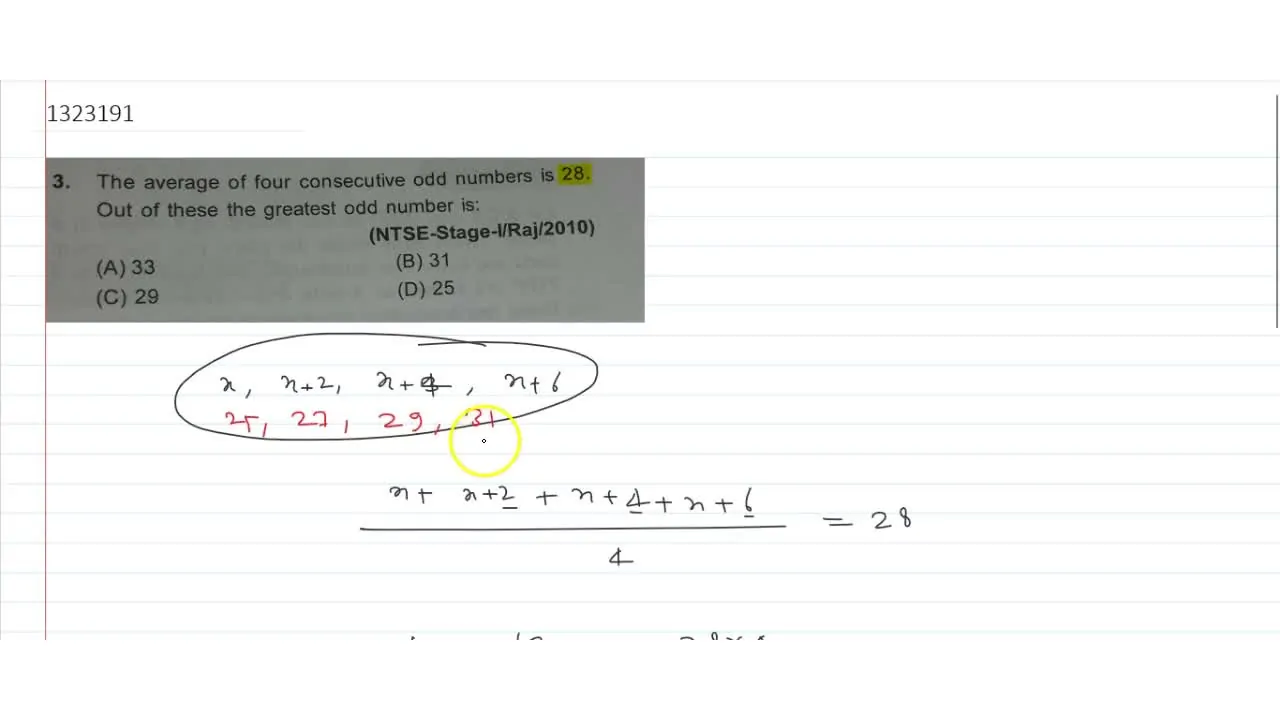 1323191
3. The average of four consecutive odd numbers is 28.
Out of these the greatest odd number is:
(NTSE-Stage-I/Raj/2010)
(A) 33 (B) 31
(C) 29 (D) 25
x, x+2, x+4, x+6
25, 27, 29, 31
x+ x+2 + x+4+x+6
= 28
4